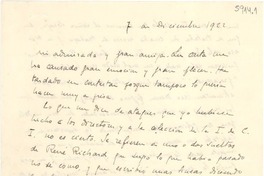 5914,1
7 de Diciembre 1952
mi admirada y gran amiga. Su carta me
ha causado gran emoción y gran placer. He
tardado en contestar porque tampoco lo podía
hacer muy a prisa.
Lo que me dicen de ataques que yo hubiese
hecho a los directores y a la colección de la I. de C.
I. no es cierto. Se refieren de uno o dos sueltos
de René Richard que supo lo que había pasado
no sé como y que escribió unas líneas diciendo